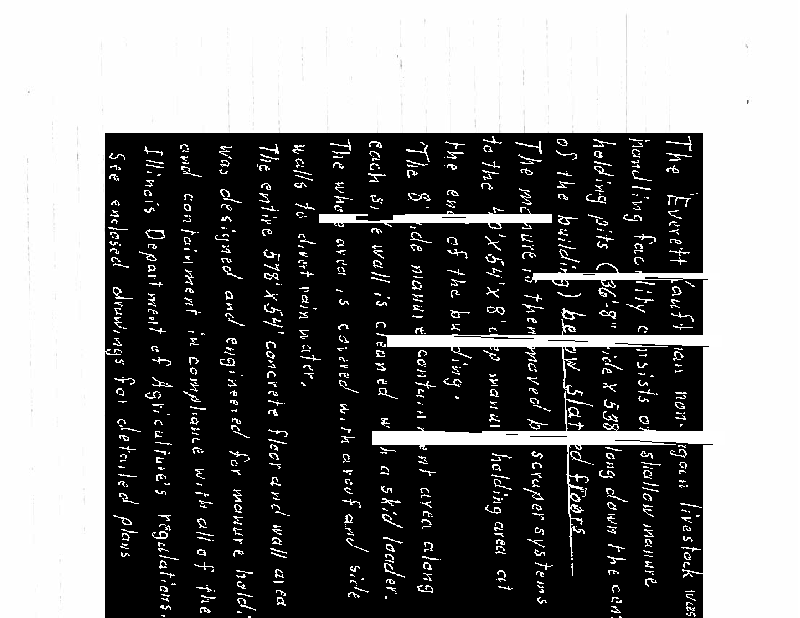 The Everett non- livestock
handling consists shallow manure
holding pits down the
of the building) below slatted floors
The manure is scraper systems
to the 40'x54'x8' deep manure holding area at
the end of the building.
The 8' manure containment area along
each side wall is cleaned with a skid loader.
The whole area is covered with a roof and side
walls to divert rain water.
The entire 578'x54' concrete floor and wall area
was designed and engineered for manure hold.
and containment in compliance with all of the
Illinois Department of Agriculture's regulations.
See enclosed drawings for detailed plans